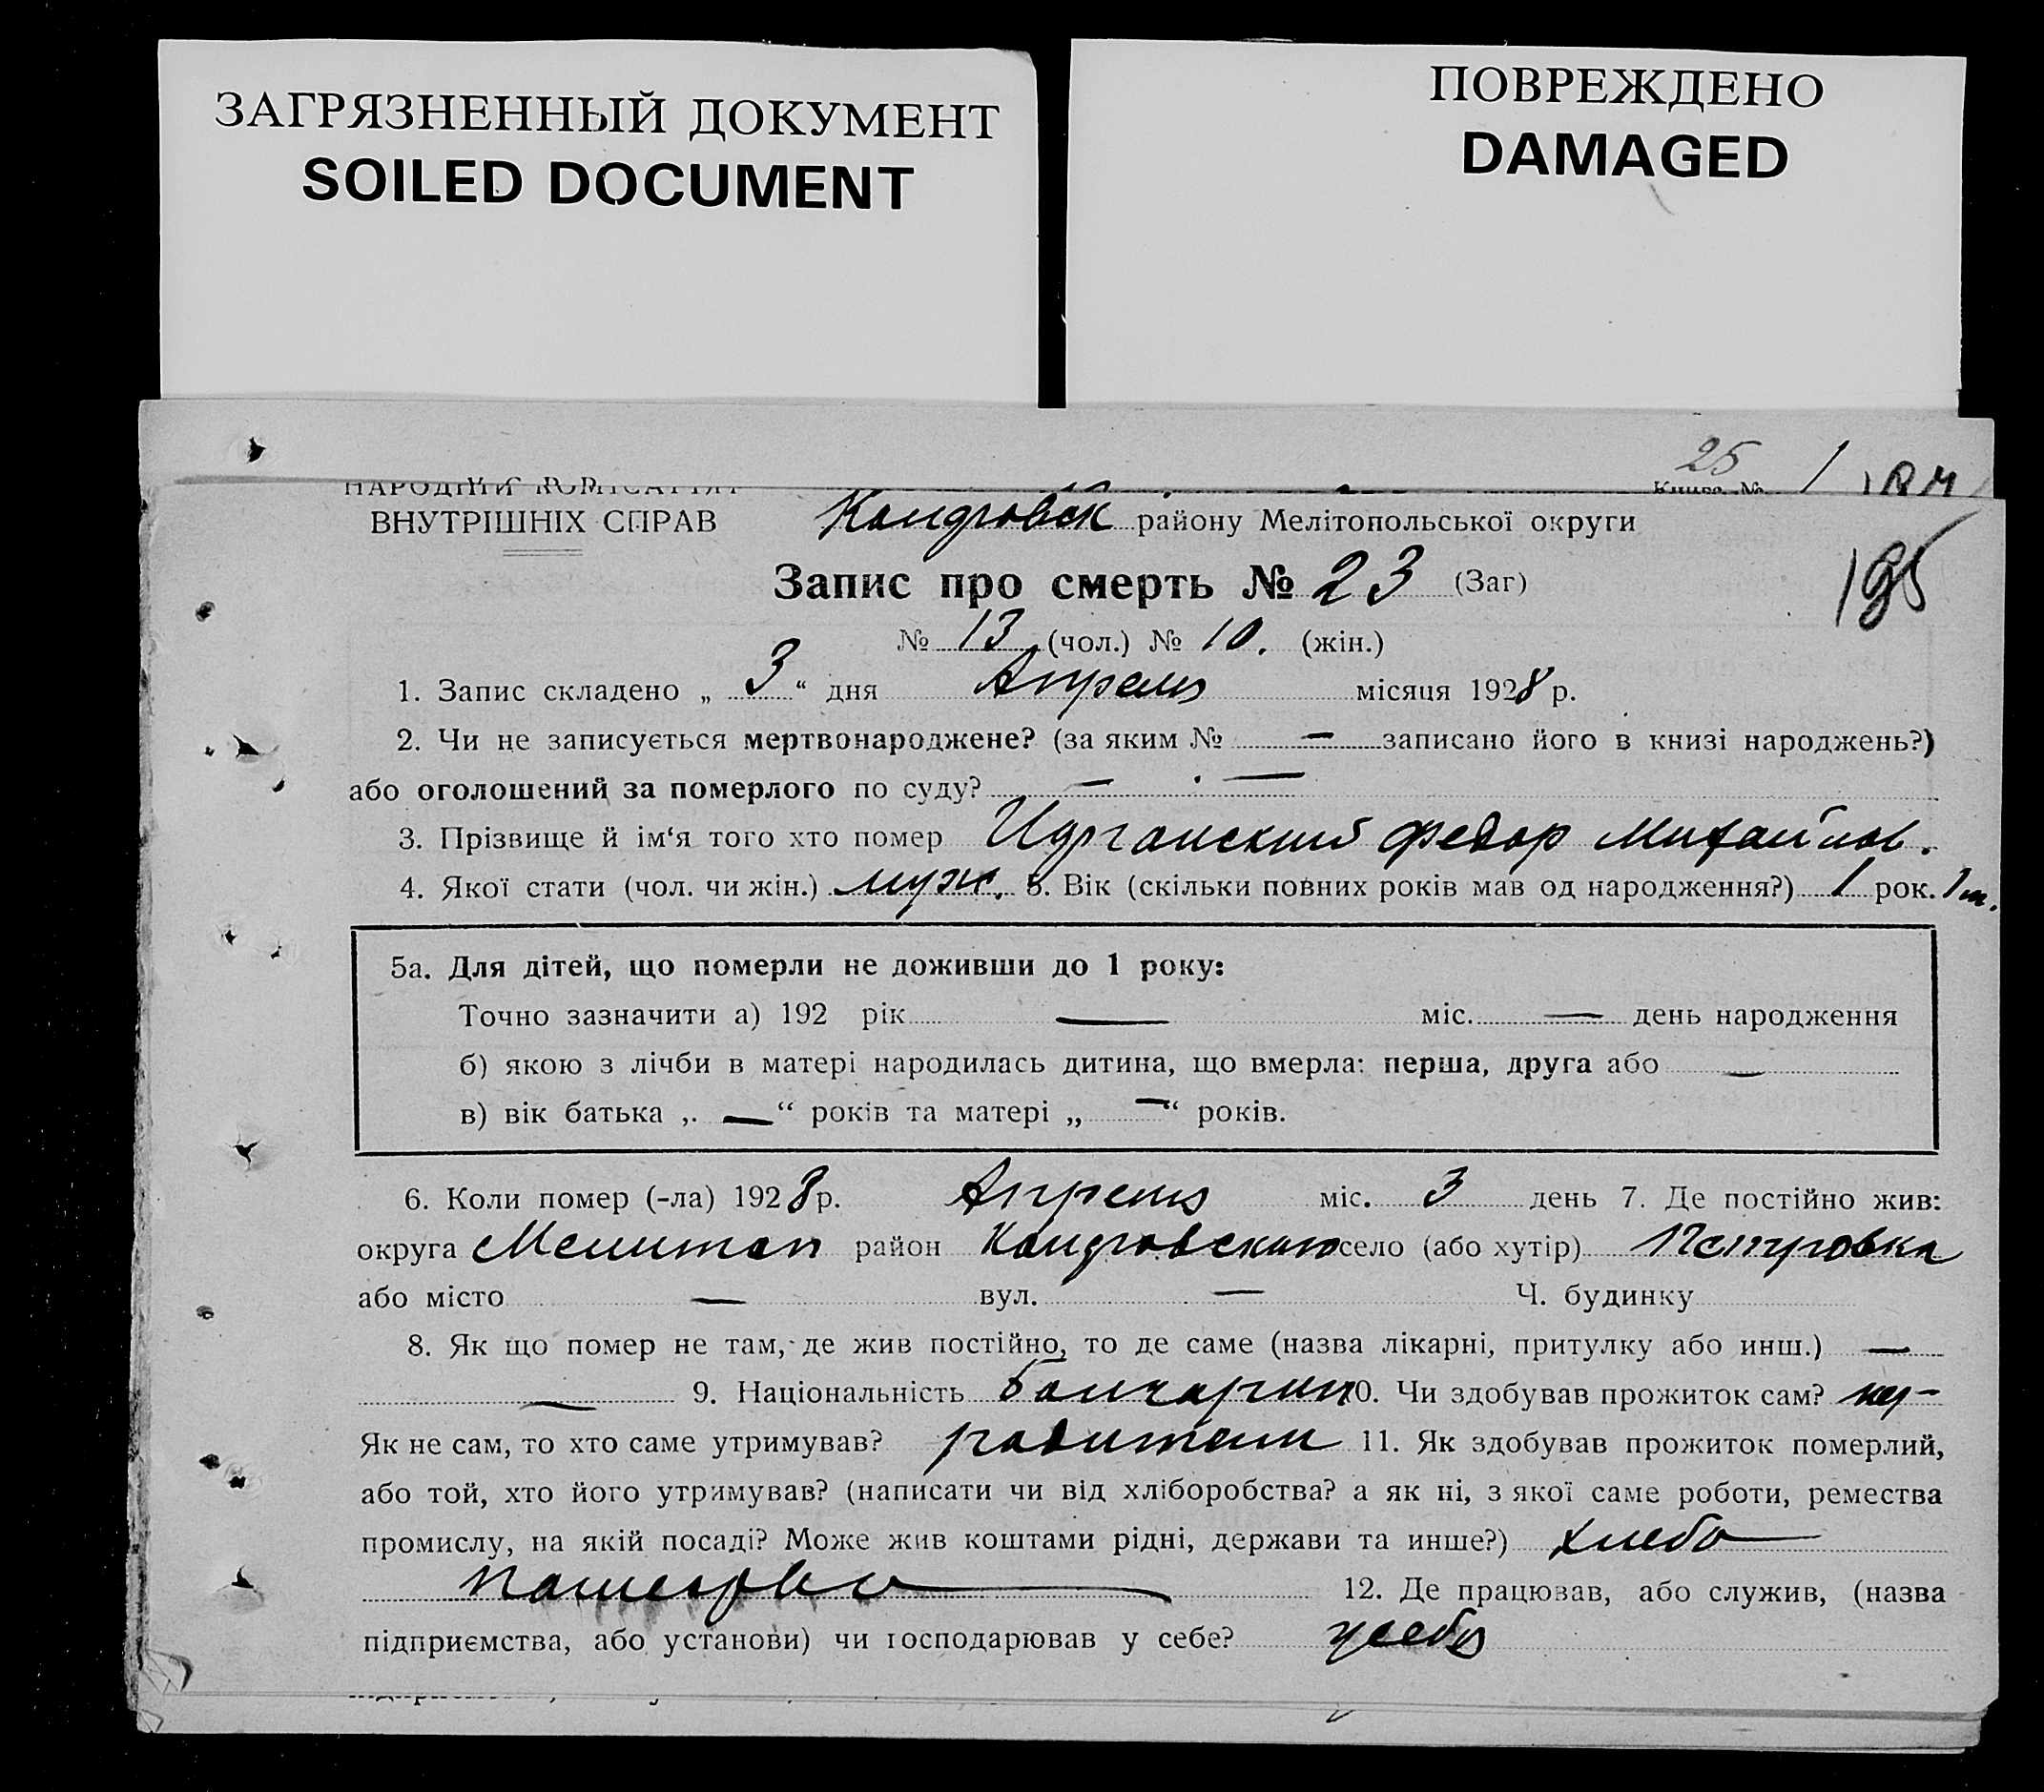 ЗАГРЯЗНЕННЫЙ ДОКУМЕНТ
SOILED DOCUMENT
ПОВРЕЖДЕНО
DAMAGED
25
1
ВНУТРІШНІХ СПРАВ
району Мелітопольської округи
195
Запис про смерть № 23 (Заг)
№ 13 (чол.) № 10. (жін.)
1. Запис складено „ 3 “ дня Апреля місяця 1928 р.
2. Чи не записується мертвонароджене? (за яким № — записано його в книзі народжень?)
або оголошений за померлого по суду? — —
3. Прізвище й ім‘я того хто помер Федор Михайлов.
4. Якої стати (чол. чи жін.) муж. 5. Вік (скільки повних років мав од народження?) 1 рок. 1 м.
5а. Для дітей, що померли не доживши до 1 року:
Точно зазначити а) 192 рік — міс. — день народження
б) якою з лічби в матері народилась дитина, що вмерла: перша, друга або —
в) вік батька „ — “ років та матері „ — “ років.
6. Коли помер (-ла) 1928 р. Апреля міс. 3 день 7. Де постійно жив:
округа Мелитоп район село (або хутір) Петровка
або місто — вул. — Ч. будинку
8. Як що помер не там, де жив постійно, то де саме (назва лікарні, притулку або инш.) —
— 9. Національність болгарин 10. Чи здобував прожиток сам? нет
Як не сам, то хто саме утримував? родители 11. Як здобував прожиток померлий,
або той, хто його утримував? (написати чи від хліборобства? а як ні, з якої саме роботи, ремества
промислу, на якій посаді? Може жив коштами рідні, держави та инше?) хлебо
пашество 12. Де працював, або служив, (назва
підприємства, або установи) чи господарював у себе? у себя